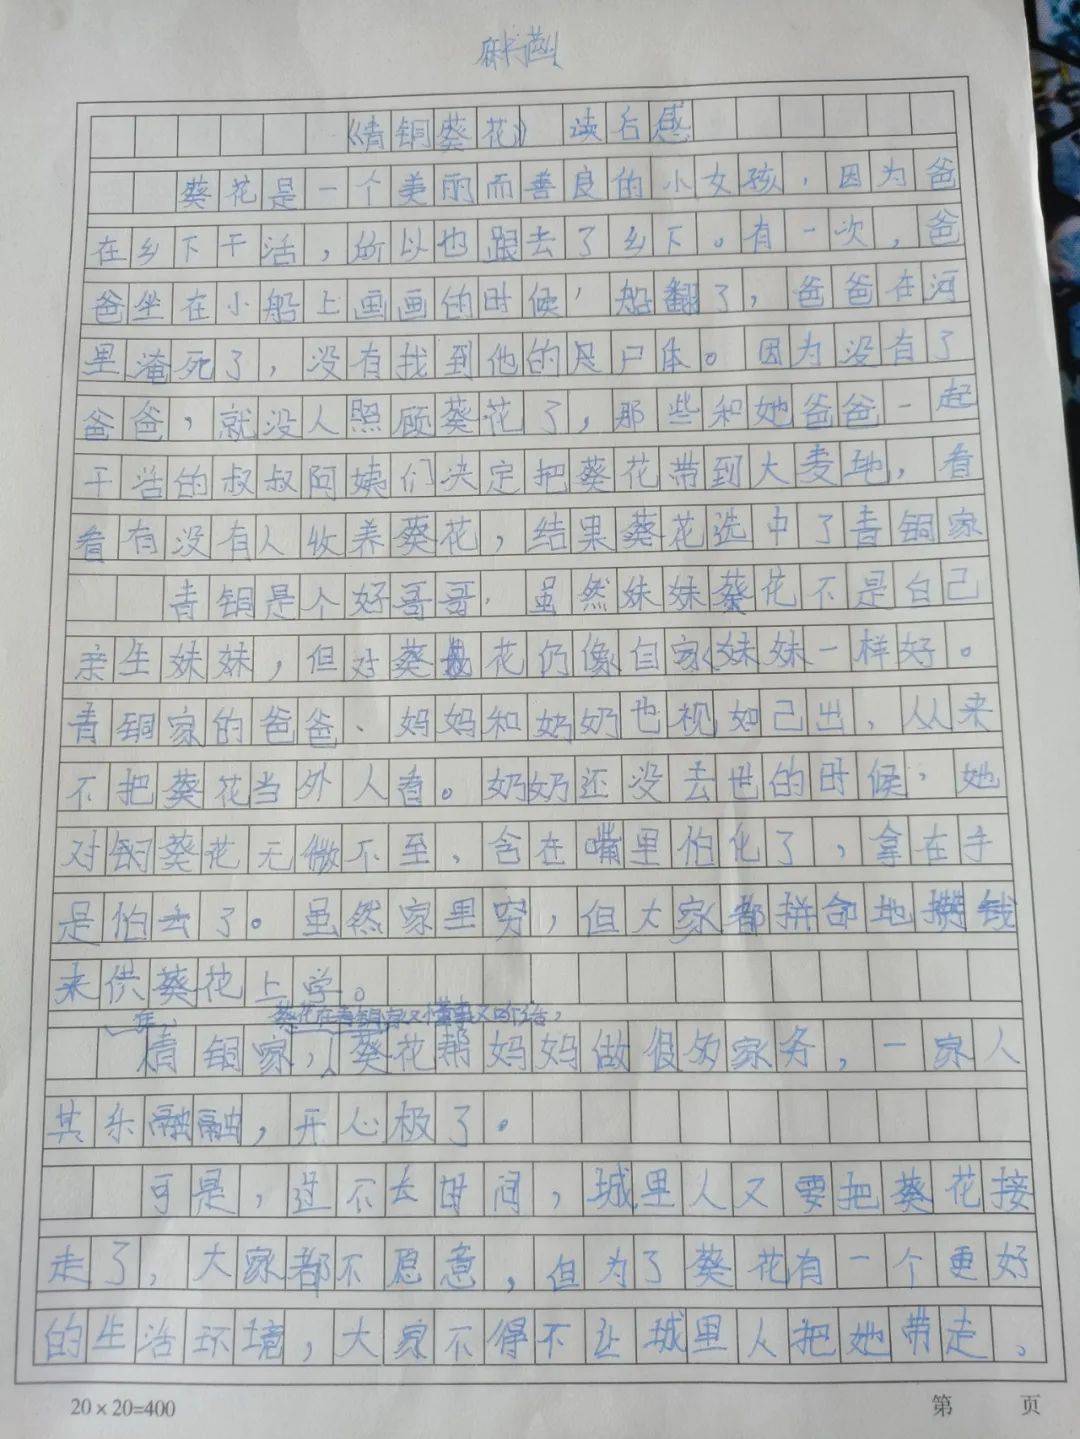 《青铜葵花》读后感
葵花是一个美丽而善良的小女孩，因为爸
在乡下干活，所以也跟去了乡下。有一次，爸
爸坐在小船上画画的时候，船翻了，爸爸在河
里淹死了，没有找到他的尸体。因为没有了
爸爸，就没人照顾葵花了，那些和她爸爸一起
干活的叔叔阿姨们决定把葵花带到大麦地，看
看有没有人收养葵花，结果葵花选中了青铜家
青铜是个好哥哥，虽然妹妹葵花不是自己
亲生妹妹，但对葵花仍像自家妹妹一样好。
青铜家的爸爸、妈妈和奶奶也视如己出，从来
不把葵花当外人看。奶奶还没去世的时候，她
对葵花无微不至，含在嘴里怕化了，拿在手
是怕去了。虽然家里穷，但大家都拼命地攒钱
来供葵花上学。
葵花在青铜家又懂事又
青铜家，葵花帮妈妈做很多家务，一家人
其乐融融，开心极了。
可是，过不长时间，城里人又要把葵花接
走了，大家都不愿意，但为了葵花有一个更好
的生活环境，大家不得不让城里人把她带走、
20×20=400
第 页